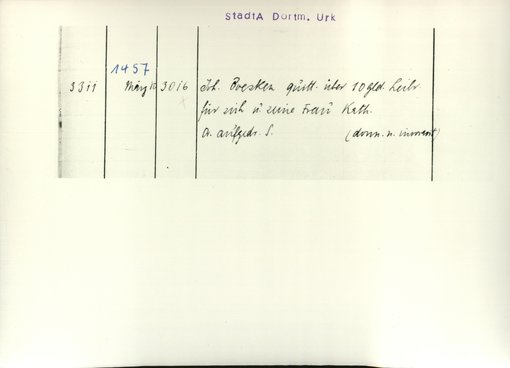 StadtA Dortm. Urk
1457
3311 März 10 3016 Joh. quitt. über 10 gld. Leibr.
für sich u seine Frau Kath.
A. aufgedr. S. (donn. n. invocavit)